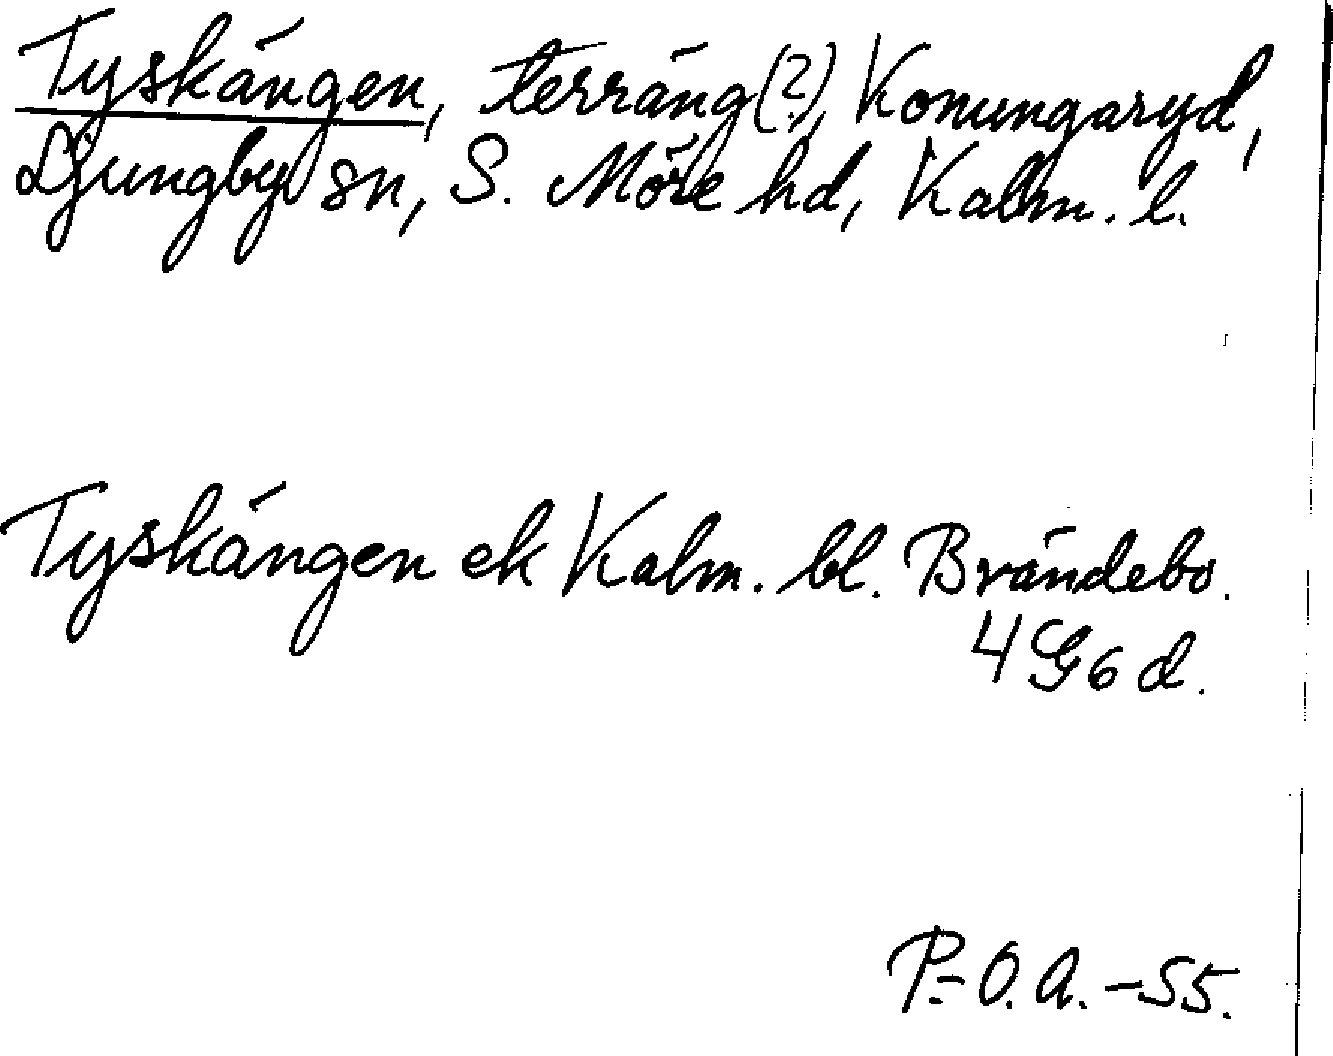 Tyskängen, terräng(?), Konungaryd,
Ljungby sn, S. Möre hd, Kalm. l.
Tyskängen ek Kalm. bl. Brändebo.
4 G 6 d.
P.-O. A. -55.